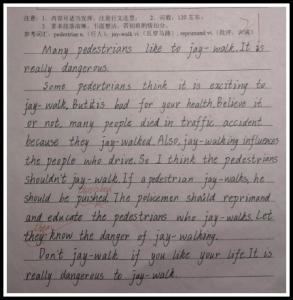 注意：1、内容可适当发挥，注意行文连贯； 2、词数：120左右；
3、要求段落清晰，书面整洁，否则酌情扣分。
参考词汇：pedestrian n.（行人）; jay-walk vi.（乱穿马路）; reprimand vt.（批评，训诫）
Many pedestrians like to jay-walk. It is
really dangerous.
Some pedertrians think it is exciting to
jay-walk. But it is bad for your health. Believe it
or not, many people died in traffic accident
because they jay-walked. Also, jay-walking influences
the people who drive. So I think the pedestrians
shouldn't jay-walk. If a pedestrian jay-walks, he
punished
should be puished. The policemen should reprimand
and educate the pedestrians who jay-walks. Let
them
they know the danger of jay-walking.
Don't jay-walk if you like your life. It is
really dangerous to jay-walk.